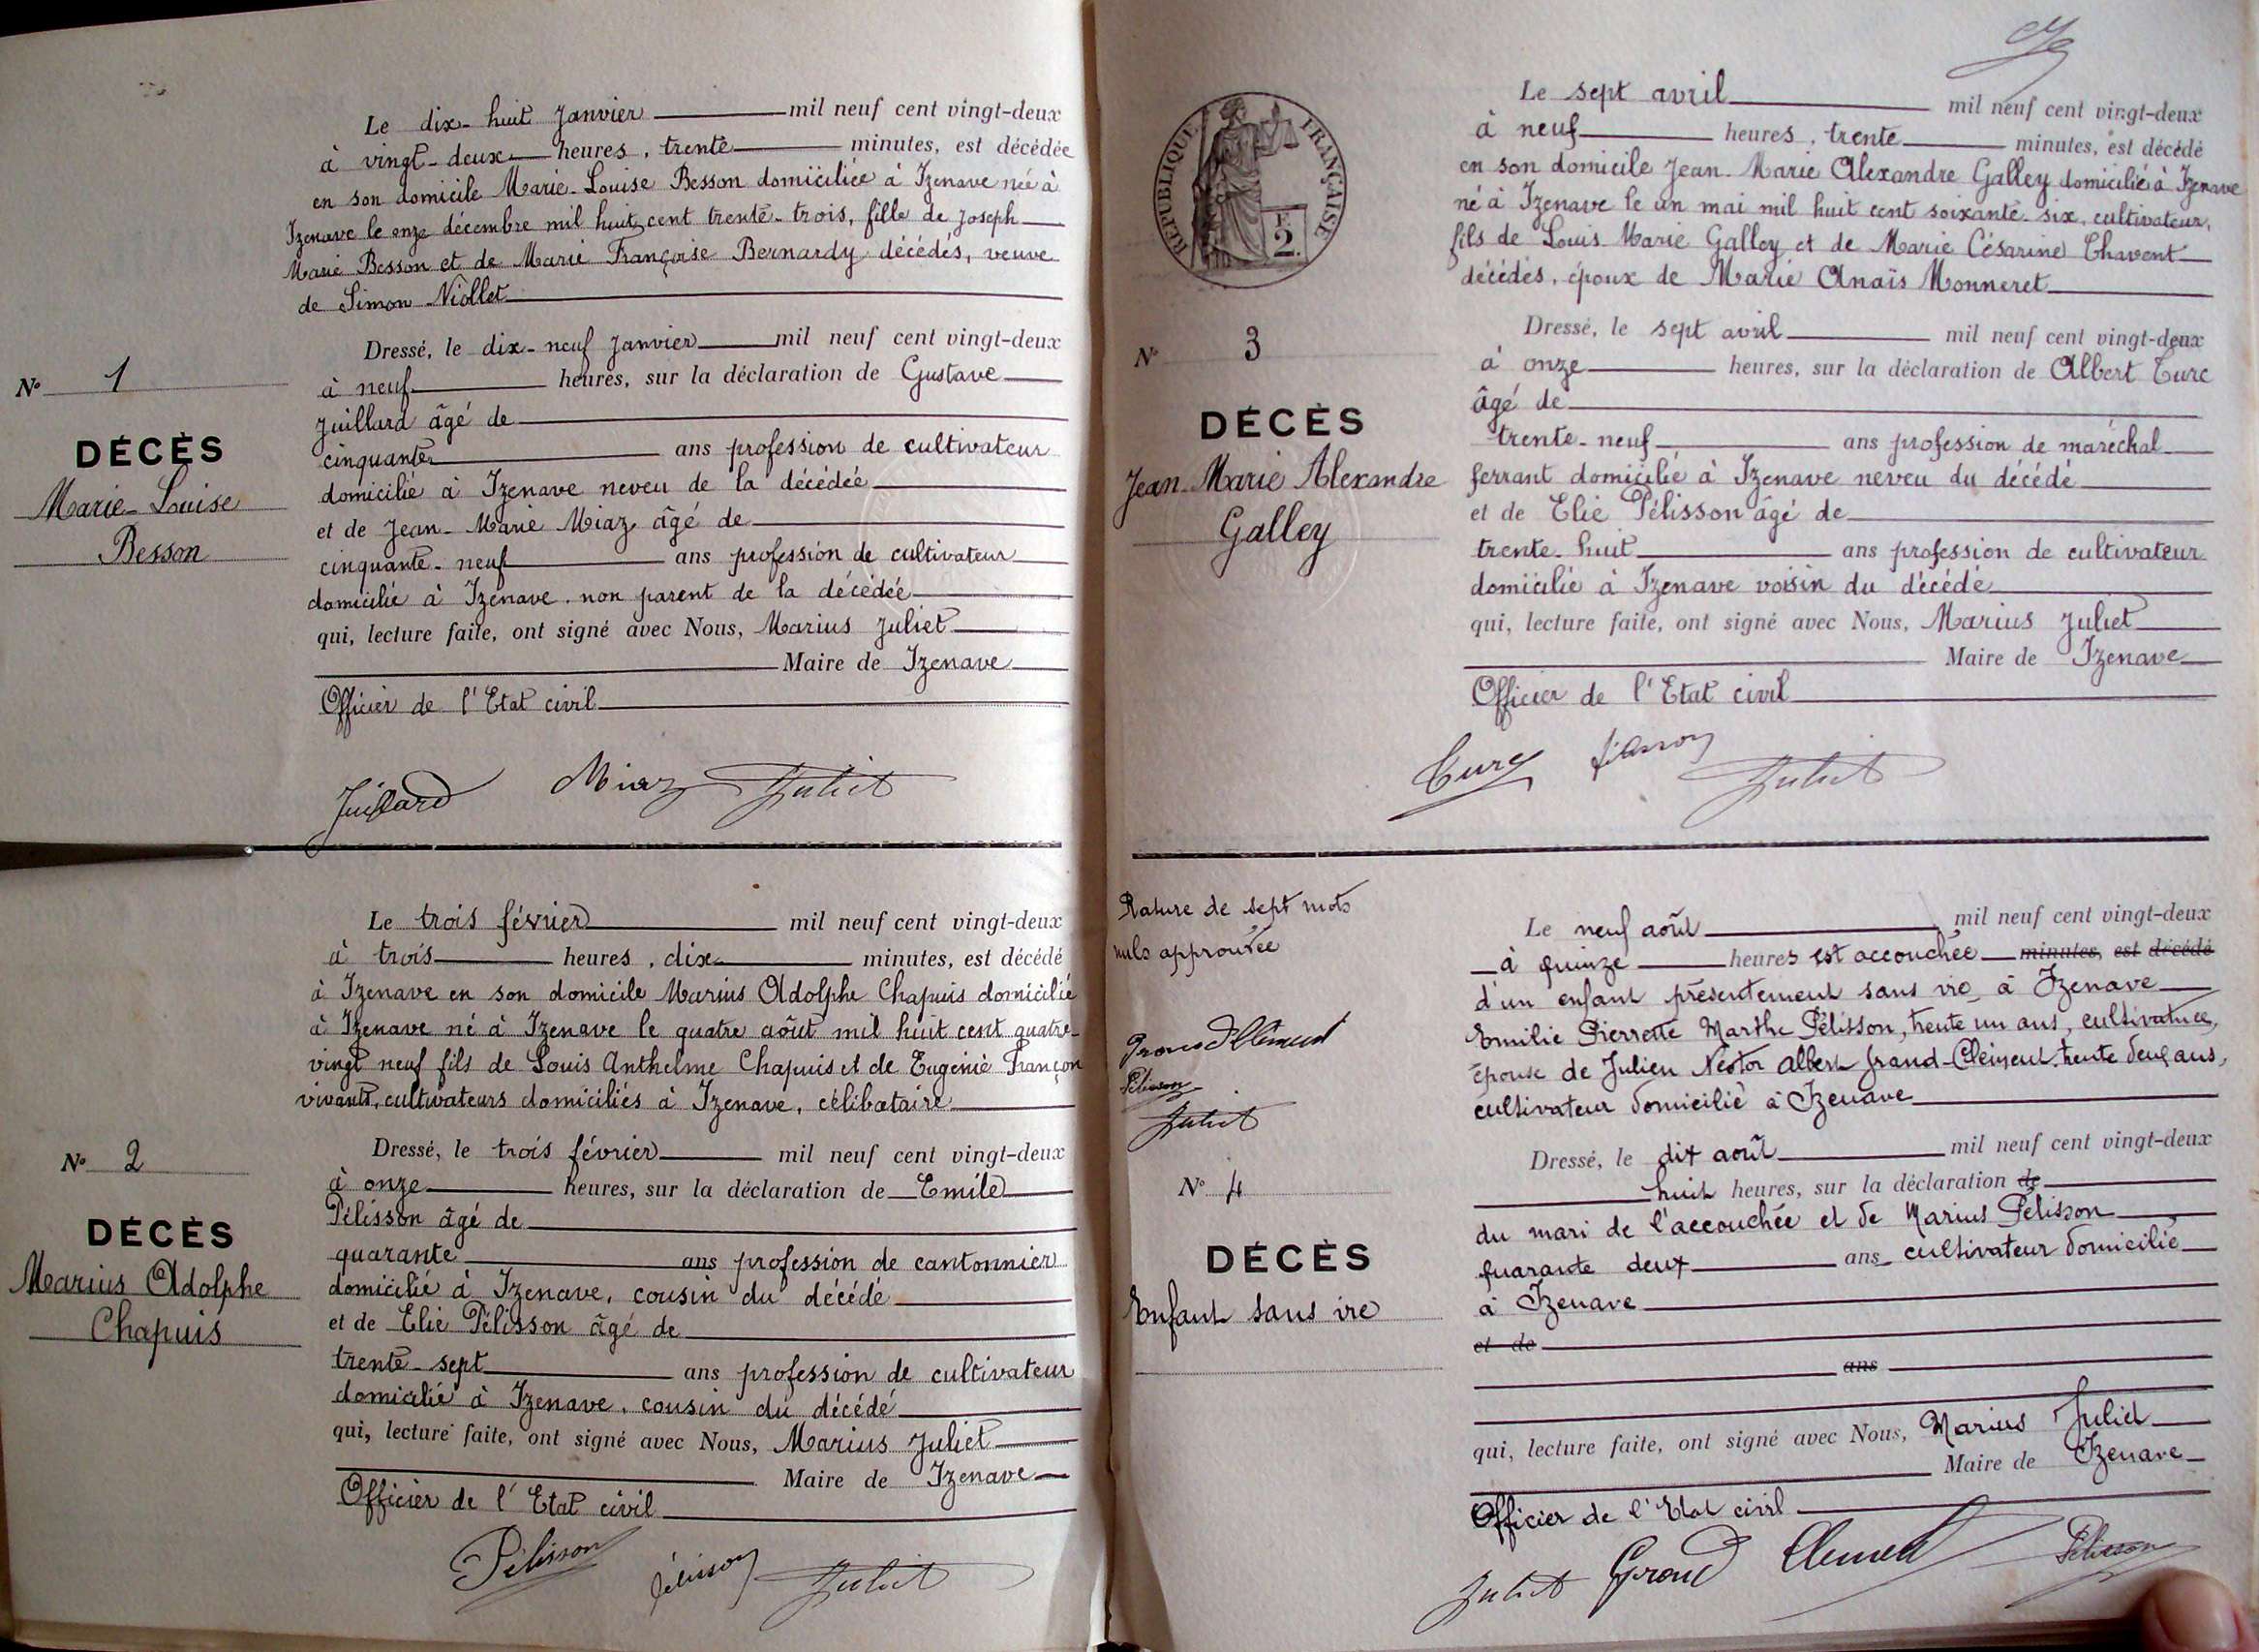 Le dix-huit Janvier mil neuf cent vingt-deux
à vingt-deux heures, trente minutes, est décédée
en son domicile Marie-Louise Besson domiciliée à Izenave née à
Izenave le onze décembre mil huit cent trente-trois, fille de Joseph
Marie Besson et de Marie Françoise Bernardy décédés, veuve
de Simon Niollet
Dressé, le dix-neuf Janvier mil neuf cent vingt-deux
à neuf heures, sur la déclaration de Gustave
Juillard âgé de
cinquante ans profession de cultivateur
domicilié à Izenave neveu de la décédée
et de Jean-Marie Miaz âgé de
cinquante-neuf ans profession de cultivateur
domicilié à Izenave. non parent de la décédée
qui, lecture faite, ont signé avec Nous, Marius Juliet
Maire de Izenave
Officier de l'Etat civil
Juillard Miaz Juliet
N° 1
DÉCÈS
Marie-Louise
Besson
Le trois février mil neuf cent vingt-deux
à trois heures, dix minutes, est décédé
à Izenave en son domicile Marius Adolphe Chapuis domicilié
à Izenave né à Izenave le quatre août mil huit cent quatre-
vingt neuf fils de Louis Anthelme Chapuis et de Eugénie Françon
vivants, cultivateurs domiciliés à Izenave, célibataire
Dressé, le trois février mil neuf cent vingt-deux
à onze heures, sur la déclaration de Emile
Pélisson âgé de
quarante ans profession de cantonnier
domicilié à Izenave, cousin du décédé
et de Elie Pélisson âgé de
trente-sept ans profession de cultivateur
domicilié à Izenave, cousin du décédé
qui, lecture faite, ont signé avec Nous, Marius Juliet
Maire de Izenave
Officier de l'Etat civil
Pélisson Pélisson Juliet
N° 2
DÉCÈS
Marius Adolphe
Chapuis
RÉPUBLIQUE FRANÇAISE
F.
2.
Le sept avril mil neuf cent vingt-deux
à neuf heures, trente minutes, est décédé
en son domicile Jean-Marie Alexandre Galley domicilié à Izenave
né à Izenave le un mai mil huit cent soixante-six, cultivateur,
fils de Louis Marie Galley et de Marie Césarine Chavent
décédés, époux de Marie Anaïs Monneret
Dressé, le sept avril mil neuf cent vingt-deux
à onze heures, sur la déclaration de Albert Turc
âgé de
trente-neuf ans profession de maréchal
ferrant domicilié à Izenave neveu du décédé
et de Elie Pélisson âgé de
trente-huit ans profession de cultivateur
domicilié à Izenave voisin du décédé
qui, lecture faite, ont signé avec Nous, Marius Juliet
Maire de Izenave
Officier de l'Etat civil
Turc Pélisson Juliet
N° 3
DÉCÈS
Jean-Marie Alexandre
Galley
Rature de sept mots
nuls approuvée
Grand Clément
Pélisson
Juliet
Le neuf août mil neuf cent vingt-deux
à quinze heures est accouchée minutes, est décédé
d'un enfant présentement sans vie, à Izenave
Emilie Pierrette Marthe Pélisson, trente un ans, cultivatrice,
épouse de Julien Nestor Albert Grand-Clément trente deux ans,
cultivateur domicilié à Izenave
Dressé, le dix août mil neuf cent vingt-deux
huit heures, sur la déclaration de
du mari de l'accouchée et de Marius Pélisson
quarante deux ans cultivateur domicilié
à Izenave
et de
ans
qui, lecture faite, ont signé avec Nous, Marius Juliet
Maire de Izenave
Officier de l'Etat civil
Juliet Grand Clément Pélisson
N° 4
DÉCÈS
Enfant sans vie